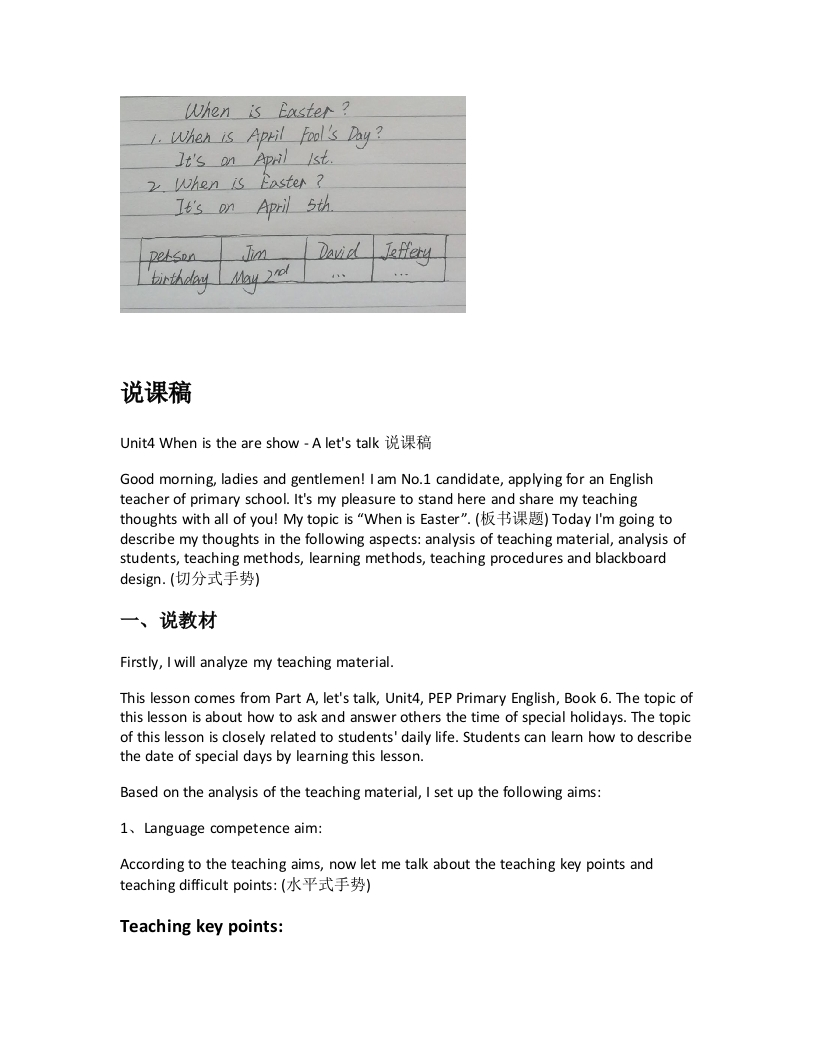 When is Easter?
1. When is April Fool's Day?
It's on April 1st.
2. When is Easter?
It's on April 5th.
person Jim David Jeffery
birthday May 2nd ... ...
说课稿
Unit4 When is the are show - A let's talk 说课稿
Good morning, ladies and gentlemen! I am No.1 candidate, applying for an English
teacher of primary school. It's my pleasure to stand here and share my teaching
thoughts with all of you! My topic is “When is Easter”. (板书课题) Today I'm going to
describe my thoughts in the following aspects: analysis of teaching material, analysis of
students, teaching methods, learning methods, teaching procedures and blackboard
design. (切分式手势)
一、说教材
Firstly, I will analyze my teaching material.
This lesson comes from Part A, let's talk, Unit4, PEP Primary English, Book 6. The topic of
this lesson is about how to ask and answer others the time of special holidays. The topic
of this lesson is closely related to students' daily life. Students can learn how to describe
the date of special days by learning this lesson.
Based on the analysis of the teaching material, I set up the following aims:
1、Language competence aim:
According to the teaching aims, now let me talk about the teaching key points and
teaching difficult points: (水平式手势)
Teaching key points: